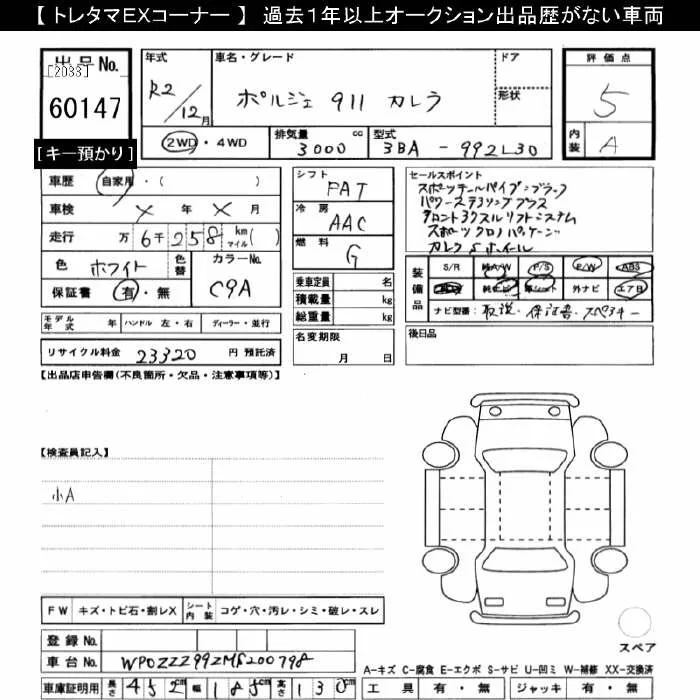 【 トレタマEXコーナー 】 過去１年以上オークション出品歴がない車両
出品 No.
[2033]
60147
[キー預かり]
年式
R2/12月
車名・グレード
ポルシェ 911 カレラ
ドア
形状
評価点
5
内装
A
2WD・4WD
排気量
3000 cc
型式
3BA - 992L30
車歴 自家用・( )
車検 × 年 × 月
走行 万 6千258 km マイル( )
色 ホワイト
色替
カラーNo.
C9A
保証書 有・無
シフト
PAT
冷房
AAC
燃料
G
乗車定員 名
積載量 kg
総重量 kg
名変期限
月 日
セールスポイント
スポーツテールパイプ ブラック
パワーステアリングプラス
フロントアクスルリフトシステム
スポーツクロノパッケージ
カレラSホイール
装備品
S/R
純A/W
P/S
P/W
ABS
革シート
外ナビ
エアB
ナビ型番: 取説・保証書・スペアキー
後日品
モデル年式 年
ハンドル 左・右
ディーラー・並行
リサイクル料金 23320 円 預託済
【出品店申告欄(不良箇所・欠品・注意事項等)】
【検査員記入】
小A
FW キズ・トビ石・割レX
シート内装 コゲ・穴・汚レ・シミ・破レ・スレ
登録 No.
車台 No. WP0ZZZ99ZMS200798
車庫証明用 長さ 452cm 幅 185cm 高さ 130cm
スペア
A-キズ C-腐食 E-エクボ S-サビ U-凹ミ W-補修 XX-交換済
工具 有・無
ジャッキ 有・無